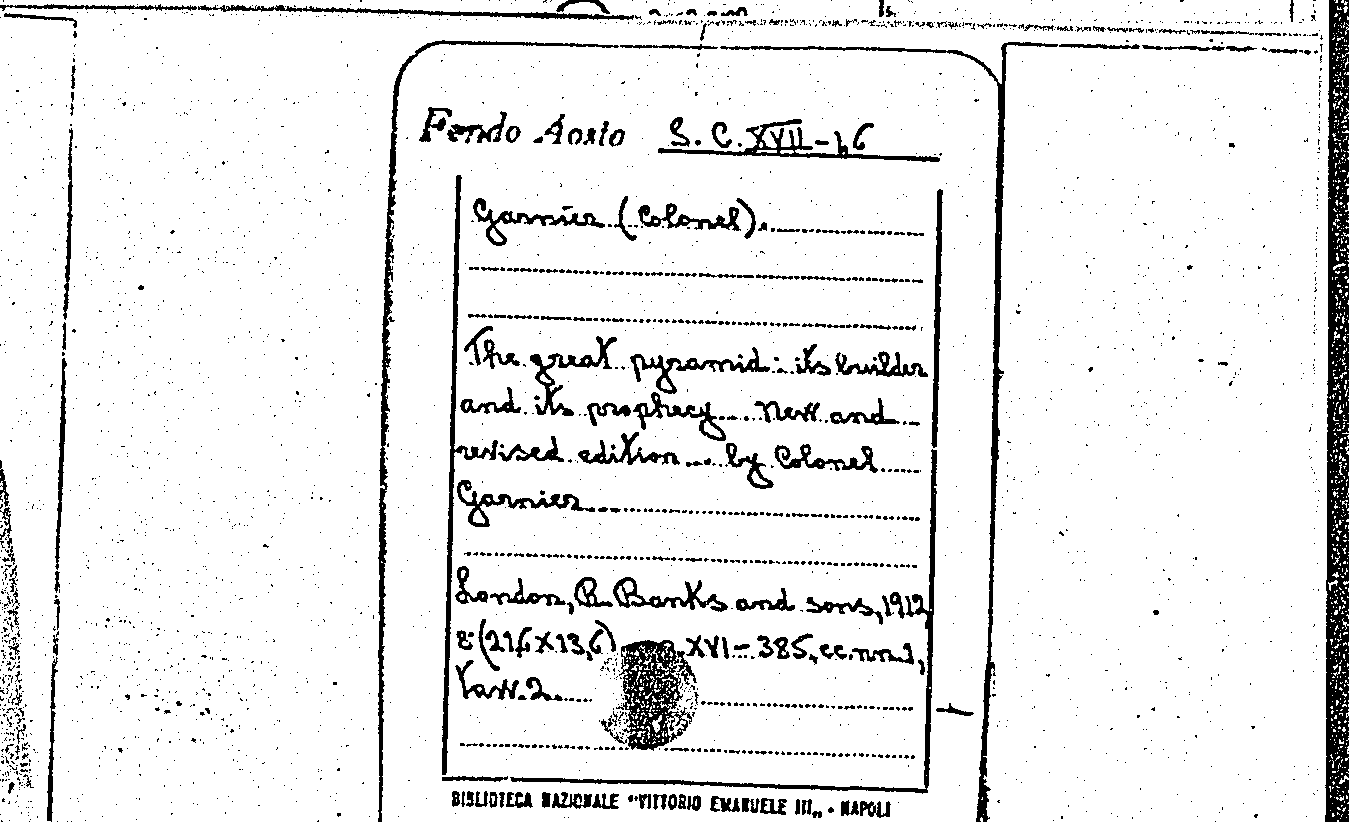 Fondo Aosta S. C. XVII - 46
Garnier (Colonel).
The great pyramid: its builder
and its prophecy... New and
revised edition... by Colonel
Garnier...
London, R. Banks and sons, 1912
8° (21,6 X 13,6) XVI - 385, cc.nn.1,
tavv. 2.
BIBLIOTECA NAZIONALE "VITTORIO EMANUELE III" - NAPOLI